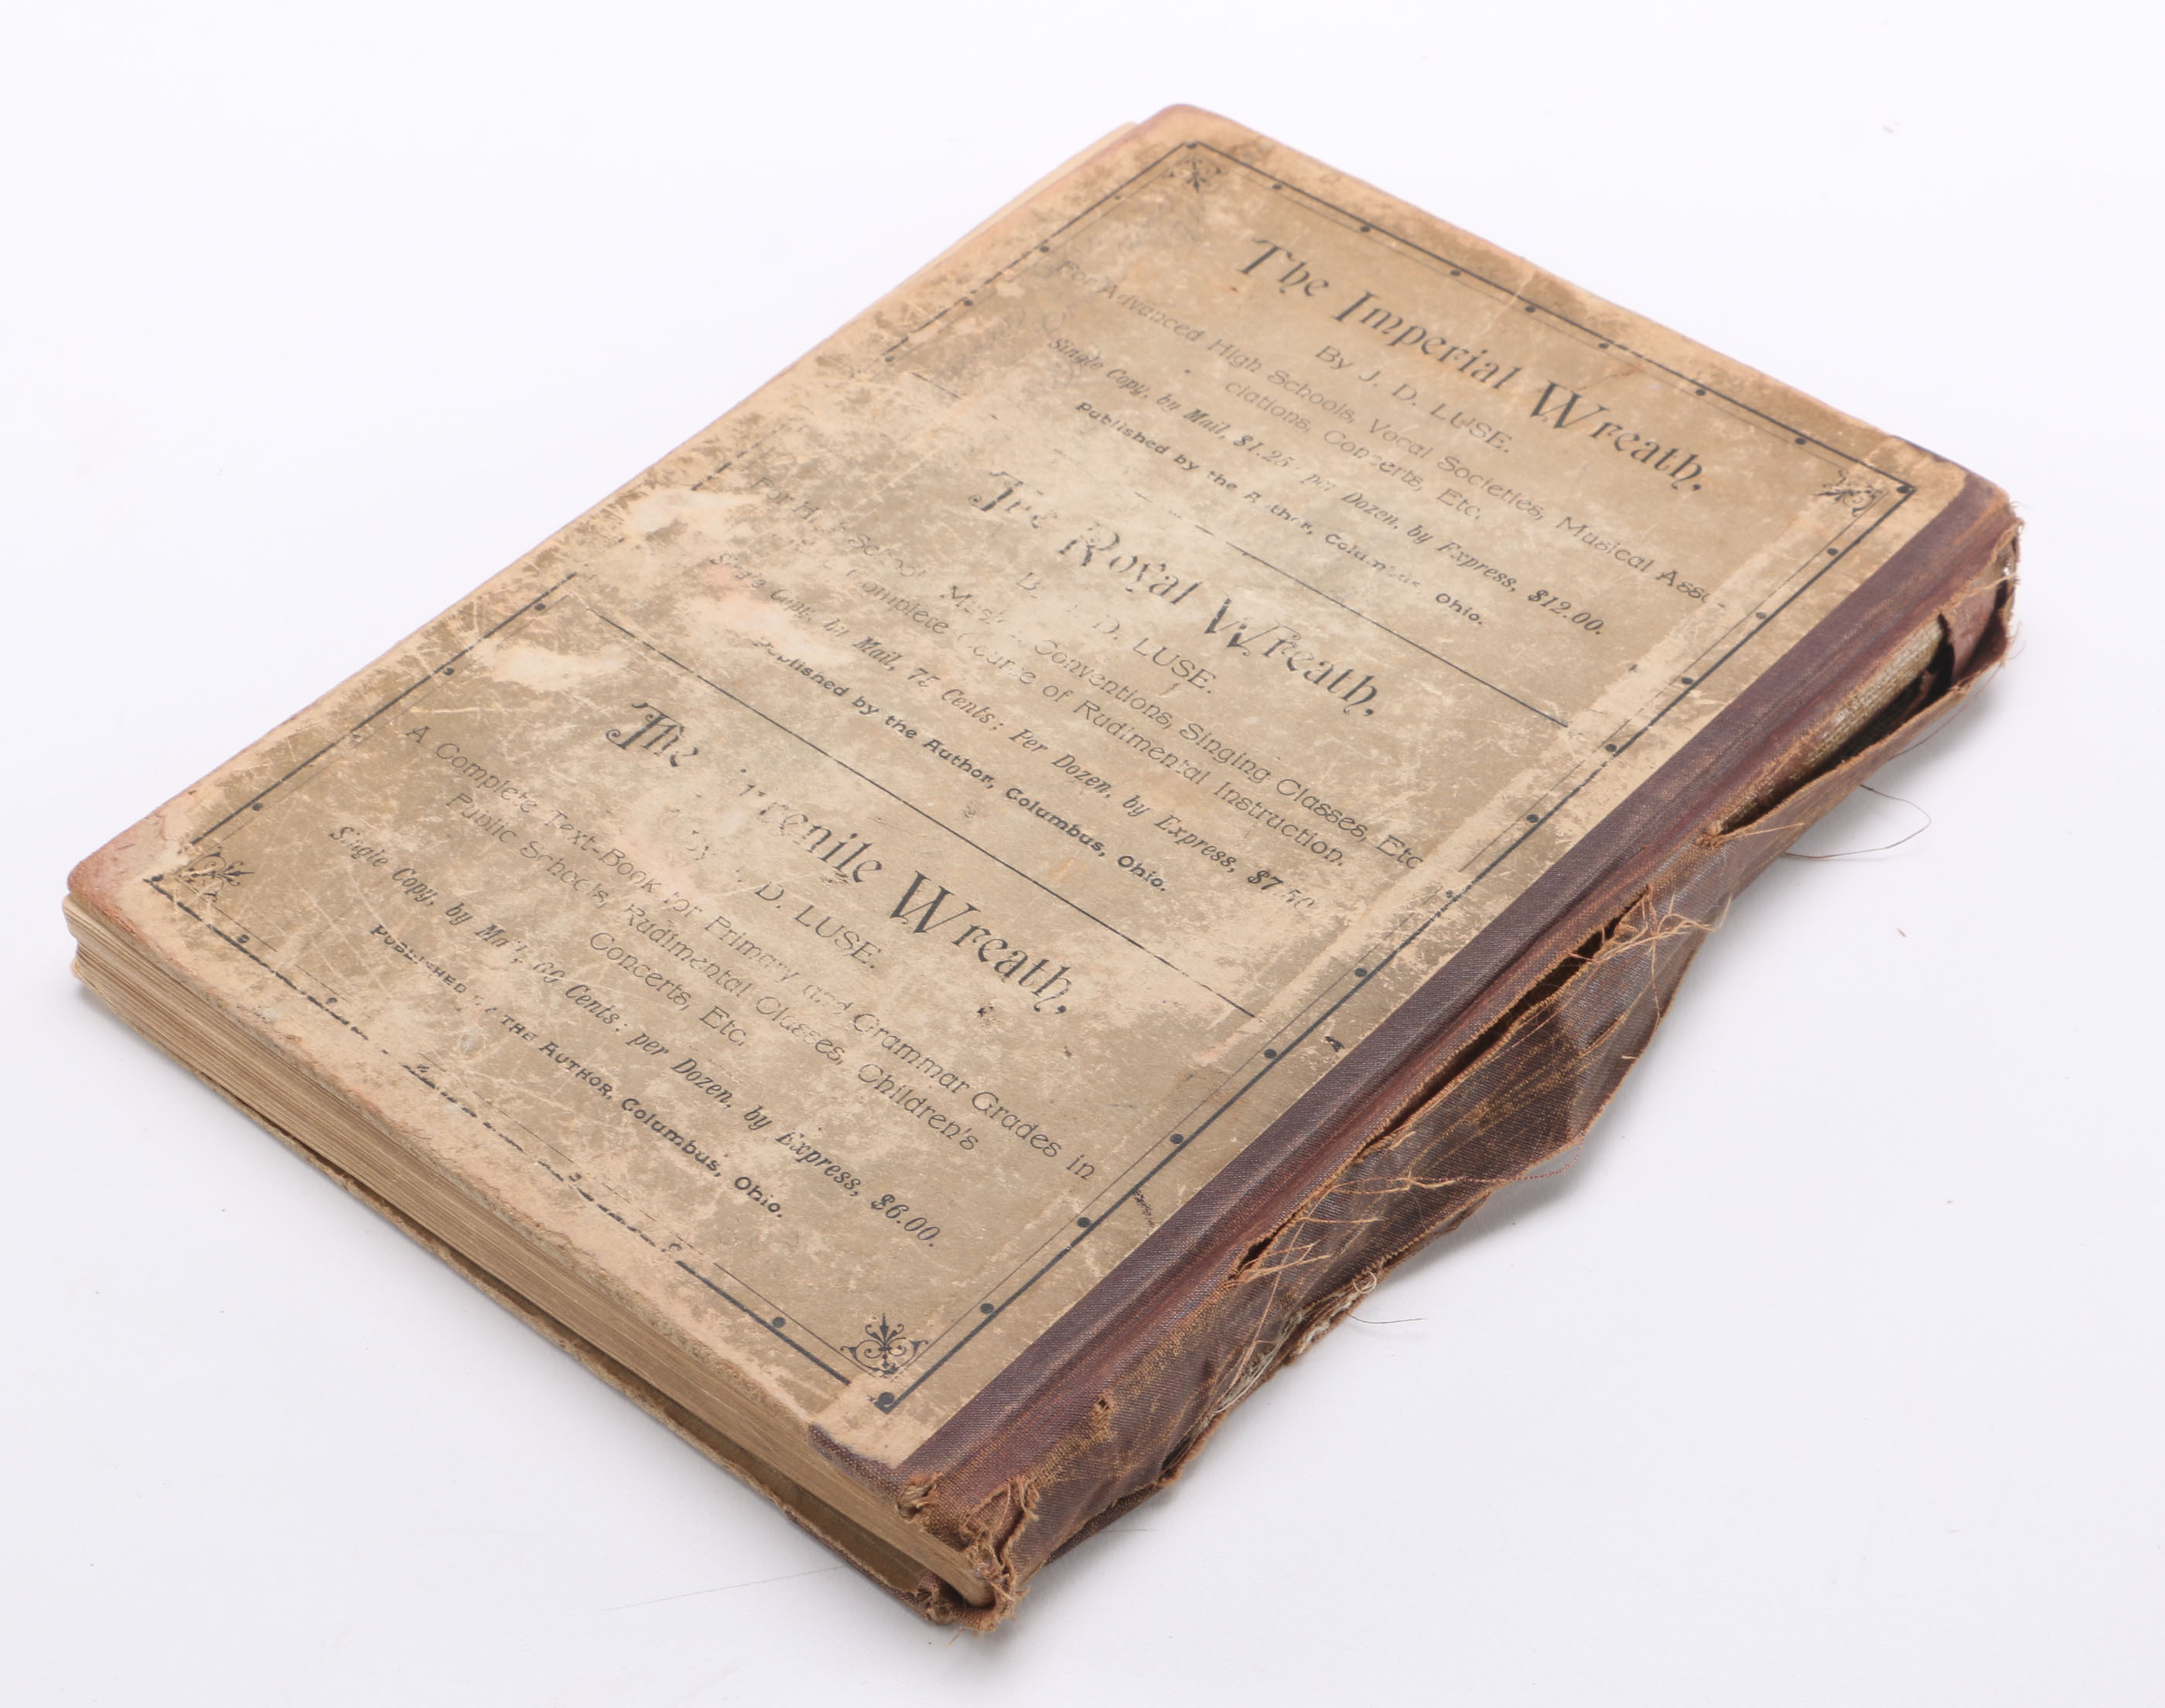 The Imperial Wreath,
By J. D. LUSE.
For Advanced High Schools, Vocal Societies, Musical Asso-
ciations, Concerts, Etc.
Single Copy, by Mail, $1.25; per Dozen, by Express, $12.00.
Published by the Author, Columbus, Ohio.
The Royal Wreath,
D. LUSE.
For School, Conventions, Singing Classes, Etc
Complete Course of Rudimental Instruction.
Single Copy, by Mail, 75 Cents; Per Dozen, by Express, $7.50
Published by the Author, Columbus, Ohio.
The Wreath,
D. LUSE.
A Complete Text-Book for Primary and Grammar Grades in
Public Schools, Rudimental Classes, Children's
Concerts, Etc.
Single Copy, by Mail, Cents; per Dozen, by Express, $6.00.
PUBLISHED THE AUTHOR, Columbus, Ohio.